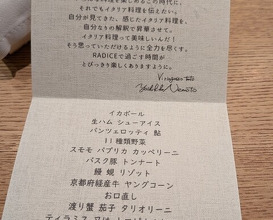 それでもイタリア料理を伝えたい。
自分が見てきた、感じたイタリア料理を、
自分なりの解釈で昇華させて。
イタリア料理って美味しいんだ!
そう思っていただけるように全力を尽くす。
RADICEで過ごす時間が
とびっきり楽しくありますように。
イカボール
生ハム シューアイス
パンツェロッティ 鮎
11種類野菜
スモモ パプリカ カッペリーニ
バスク豚 トンナート
鰻 蜆 リゾット
京都府経産牛 ヤングコーン
お口直し
渡り蟹 茄子 タリオリーニ